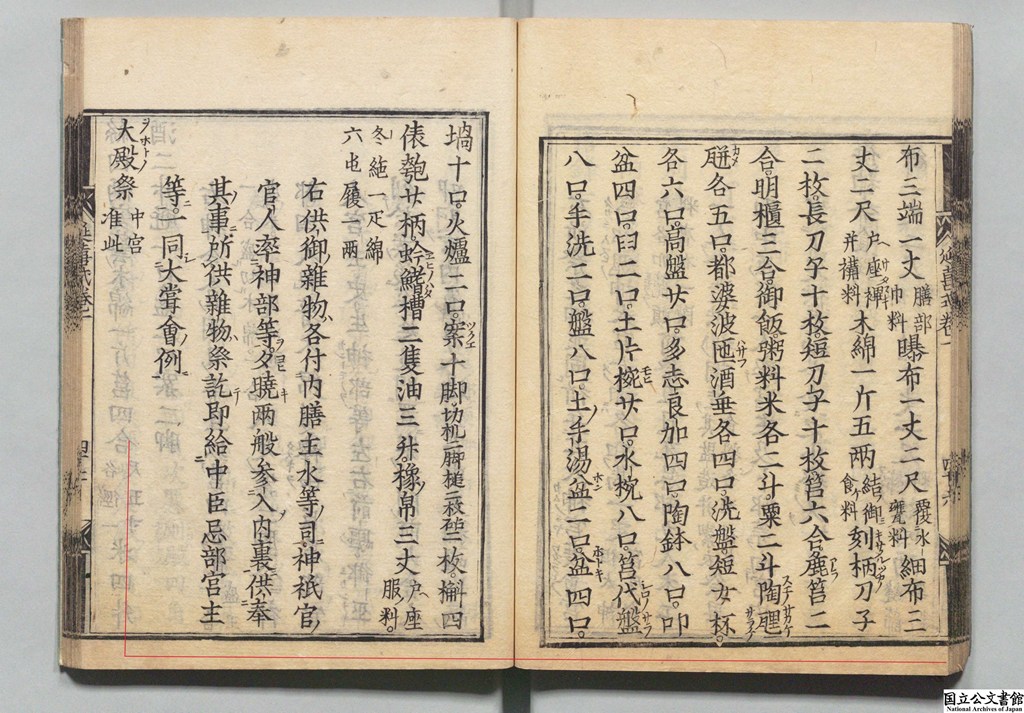 布三端一丈膳部巾料曝布一丈二尺覆水甕料細布三
丈二尺戸座襅并襷料木綿一斤五両結御食料刻柄刀子
二枚。長刀子十枚。短刀子十枚。筥六合。麁筥二
合。明櫃三合。御飯粥料米各二斗。粟二斗。陶
瓼各五口。都婆波匜酒垂各四口。洗盤短女坏。
各六口。高盤廿口。多志良加四口。陶鉢八口。叩
盆四口。臼二口。土片椀廿口。水椀八口。筥代盤
八口。手洗二口。盤八口。土手湯盆二口。盆四口。
堝十口。火爐二口。案十脚。切机二脚槌二枚砧二枚。槲四
俵。匏廿柄。蚡鰭槽二隻。油三升。橡帛三丈戸座服料。
冬絁一疋綿
六屯履一両
右供御雑物。各付内膳主水等司。神祇官
官人率神部等。夕暁両般参入内裏供奉
其事。所供雑物。祭訖即給中臣忌部宮主
等。一同大嘗会例
大殿祭中宮准此
国立公文書館
National Archives of Japan